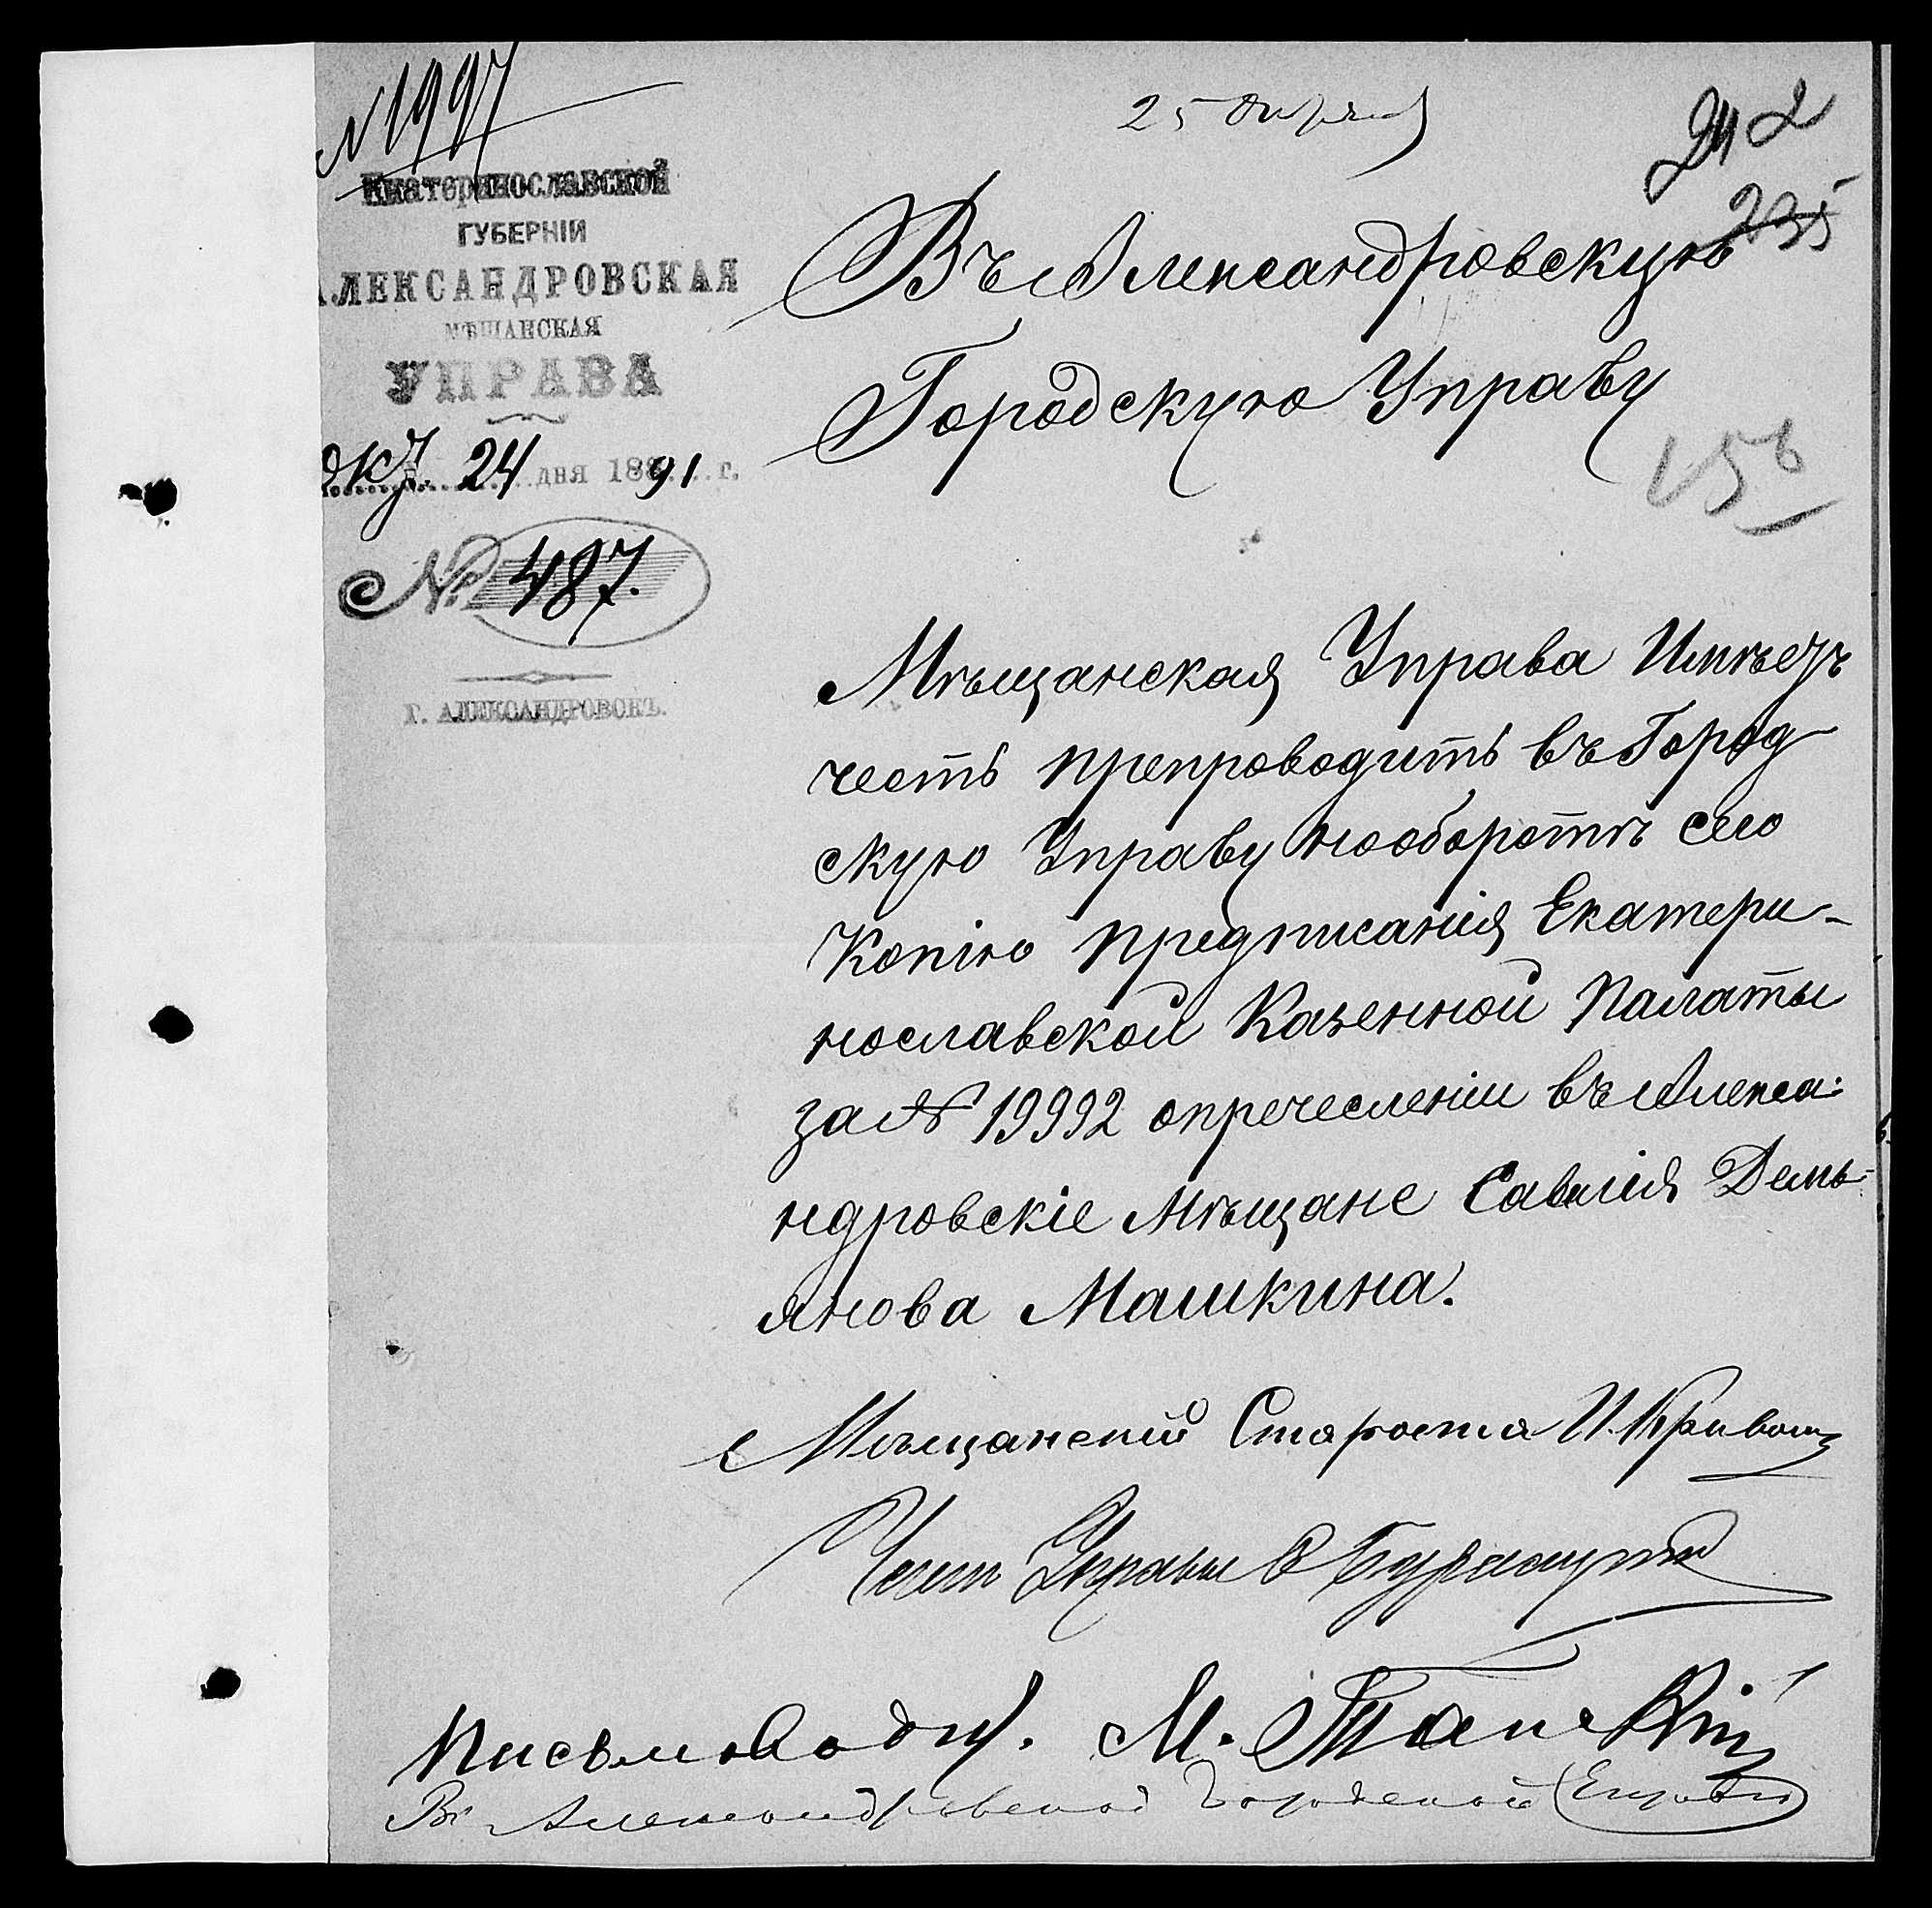 № 1997
25 октября
242
235
156
Екатеринославской
ГУБЕРНІИ
АЛЕКСАНДРОВСКАЯ
МѢЩАНСКАЯ
УПРАВА
Окт. 24 дня 1891 г.
№ 487.
г. АЛЕКСАНДРОВСКЪ.
Въ Александровскую
Городскую Управу
Мѣщанская Управа Имѣетъ
честь препроводить въ Город
скую Управу наоборотѣ сего
Копію предписанія Екатери-
нославской Казенной Палаты
за № 19992 опречесленіи въ Алекса-
ндровскіе мѣщане Савелія Демь-
янова Машкина.
Мѣщанскій Староста И.
Член Управы
Письмовод. М.
В Александровской Городской Управы